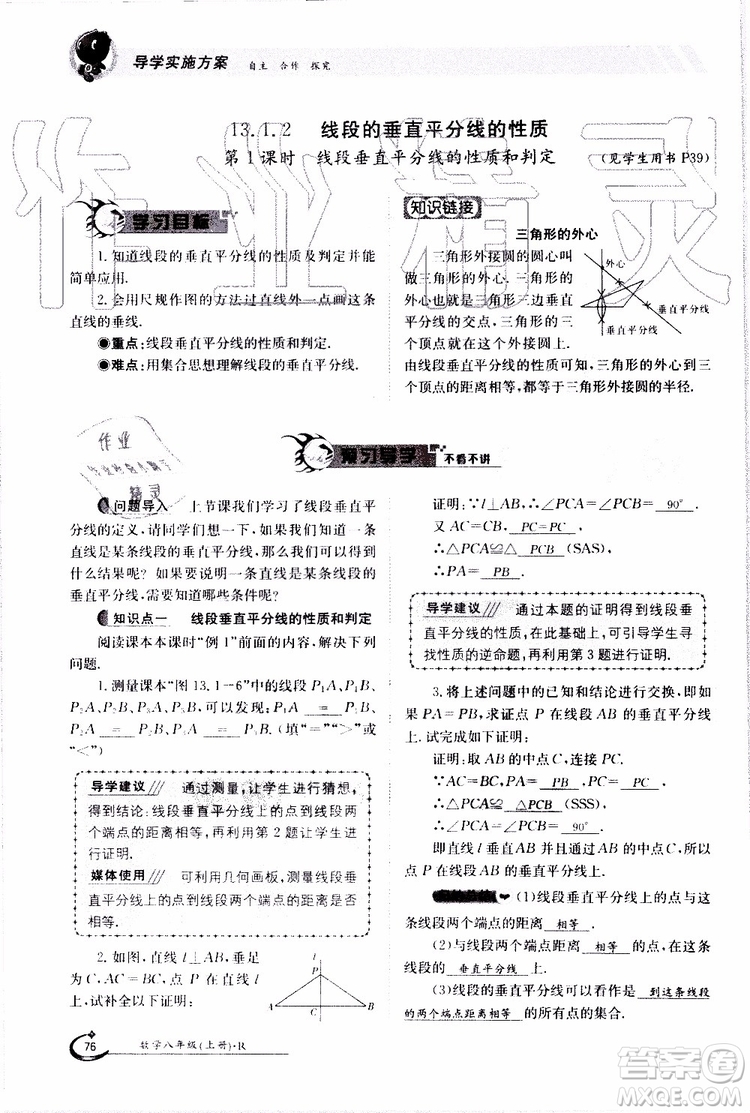 导学实施方案 自主 合作 探究
13.1.2 线段的垂直平分线的性质
第1课时 线段垂直平分线的性质和判定 (见学生用书 P39)
学习目标
1. 知道线段的垂直平分线的性质及判定并能
简单应用.
2. 会用尺规作图的方法过直线外一点画这条
直线的垂线.
◉重点:线段垂直平分线的性质和判定.
◉难点:用集合思想理解线段的垂直平分线.
知识链接
三角形的外心
三角形外接圆的圆心叫
做三角形的外心,三角形的外
心也就是三角形三边垂直平
分线的交点,三角形的外心到
三个顶点的距离相等.
由线段的垂直平分线的性质可知,三角形的外心到三
个顶点的距离相等,都等于三角形外接圆的半径.
外心
垂直平分线
预习导学 不看不讲
问题导入 上节课我们学习了线段垂直平
分线的定义,请同学们想一下,如果我们知道一条
直线是某条线段的垂直平分线,那么我们可以得到
什么结果呢? 如果要说明一条直线是某条线段的
垂直平分线,需要知道哪些条件呢?
知识点一 线段垂直平分线的性质和判定
阅读课本本课时“例1”前面的内容,解决下列
问题.
1. 测量课本“图 13.1-6”中的线段 P₁A、P₁B、
P₂A、P₂B、P₃A、P₃B,可以发现:P₁A = P₁B,
P₂A = P₂B,P₃A = P₃B. (填“=”“>”或
“<”)
导学建议 通过测量,让学生进行猜想,
得到结论:线段垂直平分线上的点到线段两
个端点的距离相等,再利用第2题让学生进
行证明.
媒体使用 可利用几何画板,测量线段垂
直平分线上的点到线段两个端点的距离的
数值.
2. 如图,直线 l⊥AB,垂足
为 C,AC=BC,点 P 在直线 l
上,试补全以下证明:
l
P
A
C
B
证明:∵l⊥AB,∴∠PCA=∠PCB= 90° .
又 AC=CB,PC= PC ,
∴△PCA≌△ PCB (SAS),
∴PA= PB .
导学建议 通过本题的证明得到线段垂
直平分线的性质,在此基础上,可引导学生寻
找性质的逆命题,再利用第3题进行证明.
3. 将上述问题中的已知和结论进行交换,即已
知 PA=PB,求证点 P 在线段 AB 的垂直平分线
上. 试完成如下证明:
证明:取 AB 的中点 C,连接 PC.
∵AC=BC,PA= PB ,PC= PC ,
∴△PCA≌△PCB (SSS),
∴∠PCA=∠ PCB = 90° .
即直线 PC 垂直 AB 并且通过 AB 的中点 C,所以
点 P 在线段 AB 的垂直平分线上.
(1)线段垂直平分线上的点与这
条线段两个端点的距离 相等 .
(2)与线段两个端点距离相等的点,在这条线
段的 垂直平分线 上.
(3)线段的垂直平分线可以看作是 到这条线段
的两个端点距离相等 的所有点的集合.
76 数学八年级(上册)·R
作业精灵
答案圈